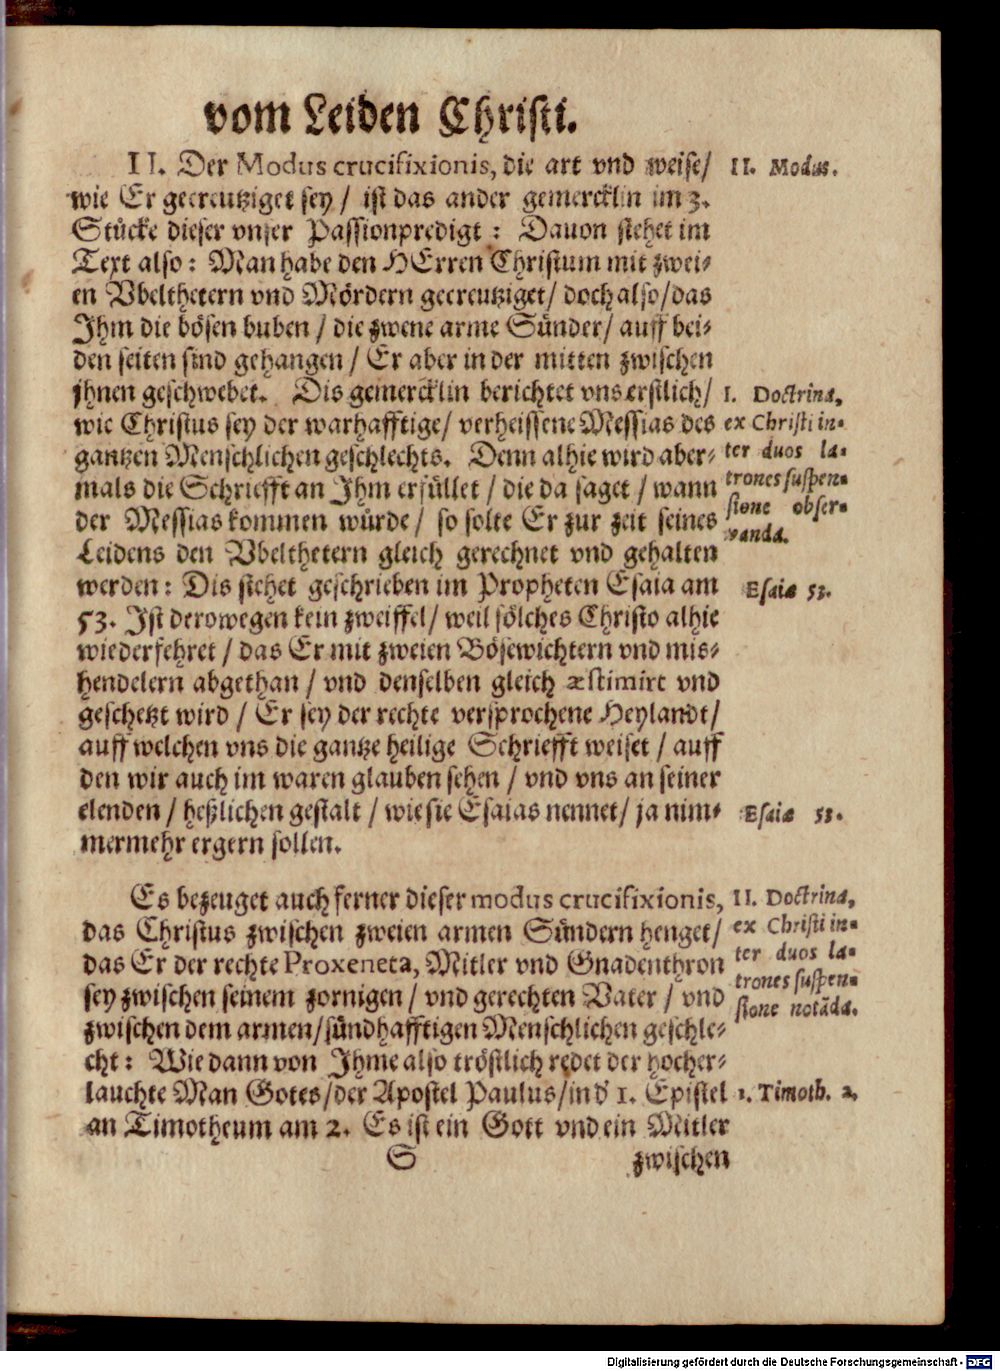 vom Leiden Christi.
II. Der Modus crucifixionis, die art vnd weise/
wie Er gecreutziget sey / ist das ander gemercklin im 3.
Stücke dieser vnser Passionpredigt : Dauon stehet im
Text also : Man habe den HErren Christum mit zwei-
en Vbelthetern vnd Mördern gecreutziget/ doch also/das
Ihm die bösen buben / die zwene arme Sünder/ auff bei-
den seiten sind gehangen / Er aber in der mitten zwischen
jhnen geschwebet. Dis gemercklin berichtet vns erstlich/
wie Christus sey der warhafftige/ verheissene Messias des
gantzen Menschlichen geschlechts. Denn alhie wird aber-
mals die Schriefft an Ihm erfüllet / die da saget / wann
der Messias kommen würde / so solte Er zur zeit seines
Leidens den Vbelthetern gleich gerechnet vnd gehalten
werden : Dis stehet geschrieben im Propheten Esaia am
53. Ist derowegen kein zweiffel/ weil sölches Christo alhie
wiederfehret / das Er mit zweien Bösewichtern vnd mis-
hendelern abgethan / vnd denselben gleich æstimirt vnd
geschetzt wird / Er sey der rechte versprochene Heylandt/
auff welchen vns die gantze heilige Schriefft weiset / auff
den wir auch im waren glauben sehen / vnd vns an seiner
elenden / heßlichen gestalt / wie sie Esaias nennet/ ja nim-
mermehr ergern sollen.
Es bezeuget auch ferner dieser modus crucifixionis,
das Christus zwischen zweien armen Sündern henget/
das Er der rechte Proxeneta, Mitler vnd Gnadenthron
sey zwischen seinem zornigen / vnd gerechten Vater / vnd
zwischen dem armen/sündhafftigen Menschlichen geschle-
cht : Wie dann von Ihme also tröstlich redet der hocher-
lauchte Man Gotes/der Apostel Paulus/in d' 1. Epistel
an Timotheum am 2. Es ist ein Gott vnd ein Mitler
S zwischen
II. Modus.
I. Doctrina,
ex Christi in-
ter duos la-
trones suspen-
sione obser-
vanda.
Esaiæ 53.
Esaiæ 53.
II. Doctrina,
ex Christi in-
ter duos la-
trones suspen-
sione notãda.
1. Timoth. 2,
Digitalisierung gefördert durch die Deutsche Forschungsgemeinschaft - DFG